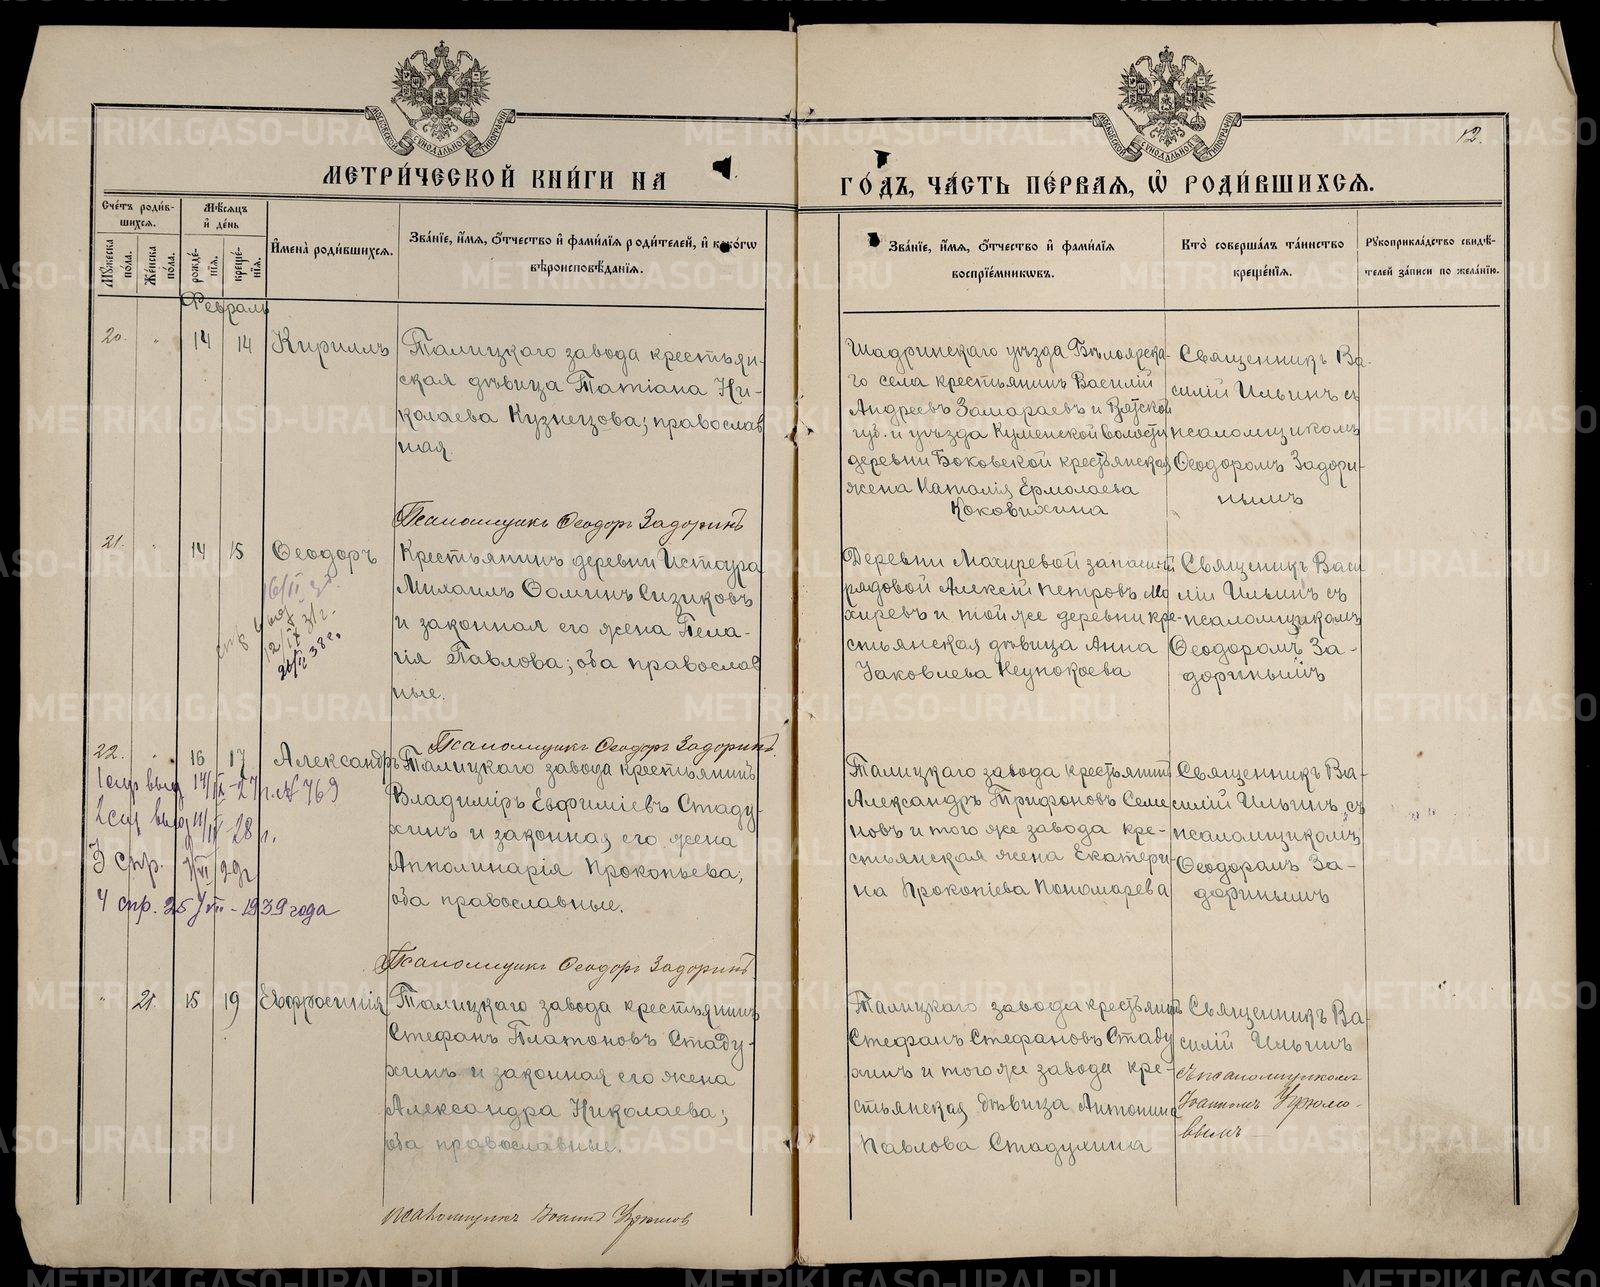 МЕТРИ́ЧЕСКОЙ КНИ́ГИ НА
ГО́ДЪ, ЧА́СТЬ ПЕ́РВАЯ, Ѡ҆ РОДИ́ВШИХСЯ.
12.
Сче́тъ роди́в-
шихся.
Мѣ́сяцъ
и҆ де́нь
Мꙋ́жеска по́ла.
Же́нска по́ла.
рожде́-
нїя.
креще́-
нїя.
И҆мена̀ роди́вшихся.
Зва́нїе, и҆́мя, ѻ҆́тчество и҆ фами́лїя роди́телей, и҆ како́гѡ
вѣроисповѣ́данїя.
Зва́нїе, и҆́мя, ѻ҆́тчество и҆ фами́лїя
воспрїе́мникѡвъ.
Кто̀ соверша́лъ та́инство
креще́нїя.
Рꙋкоприкла́дство свидѣ́-
телей за́писи по жела́нїю.
Февраль
20. " 14 14 Кириллъ
Талицкаго завода крестьян-
ская дѣвица Татіана Ни-
колаева Кузнецова; православ
ная.
Шадринскаго уѣзда Бѣлоярска-
го села крестьянинъ Василій
Андреевъ Замараевъ и Вятской
губ. и уѣзда Куменской волости
деревни Боковской крестьянская
жена Наталія Ермолаева
Коковихина
Священникъ Ва-
силій Ильинъ съ
псаломщикомъ
Ѳеодоромъ Задори-
нымъ
Псаломщикъ Ѳеодоръ Задоринъ
21. " 14 15 Ѳеодоръ
12/IX 31г.
20/II 38г.
Крестьянинъ деревни Истоура
Михаилъ Ѳоминъ Сизиковъ
и законная его жена Пела-
гія Павлова; оба православ
ные.
Деревни Махиревой запасный
рядовой Алексій Петровъ Ма
хиревъ и той же деревни кре-
стьянская дѣвица Анна
Іаковлева Неупокоева
Священникъ Васи
лій Ильинъ съ
псаломщикомъ
Ѳеодоромъ За-
доринымъ
Псаломщикъ Ѳеодоръ Задоринъ
22. " 16 17 Александръ
1 спр выд 14/IX-27 г. № 769
2 спр выд 11/IV-28 г.
3 спр. 29г
4 спр. 25/VIII-1939 года
Талицкаго завода крестьянинъ
Владиміръ Евфиміевъ Стаду-
хинъ и законная его жена
Апполинарія Прокопьева;
оба православные.
Талицкаго завода крестьянинъ
Александръ Трифоновъ Семе
новъ и того же завода кре-
стьянская жена Екатери-
на Прокопіева Пономарева
Священникъ Ва-
силій Ильинъ съ
псаломщикомъ
Ѳеодоромъ За-
доринымъ
Псаломщикъ Ѳеодоръ Задоринъ
" 21. 15 19 Евфросинія
Талицкаго завода крестьянинъ
Стефанъ Платоновъ Стаду-
хинъ и законная его жена
Александра Николаева;
оба православные.
Талицкаго завода крестьянинъ
Стефанъ Стефановъ Стаду
хинъ и того же завода кре-
стьянская дѣвица Антонина
Павлова Стадухина
Священникъ Ва-
силій Ильинъ
съ псаломщикомъ
Іоанномъ Урюмо-
вымъ
псаломщикъ Іоаннъ Урюмов
METRIKI.GASO-URAL.RU